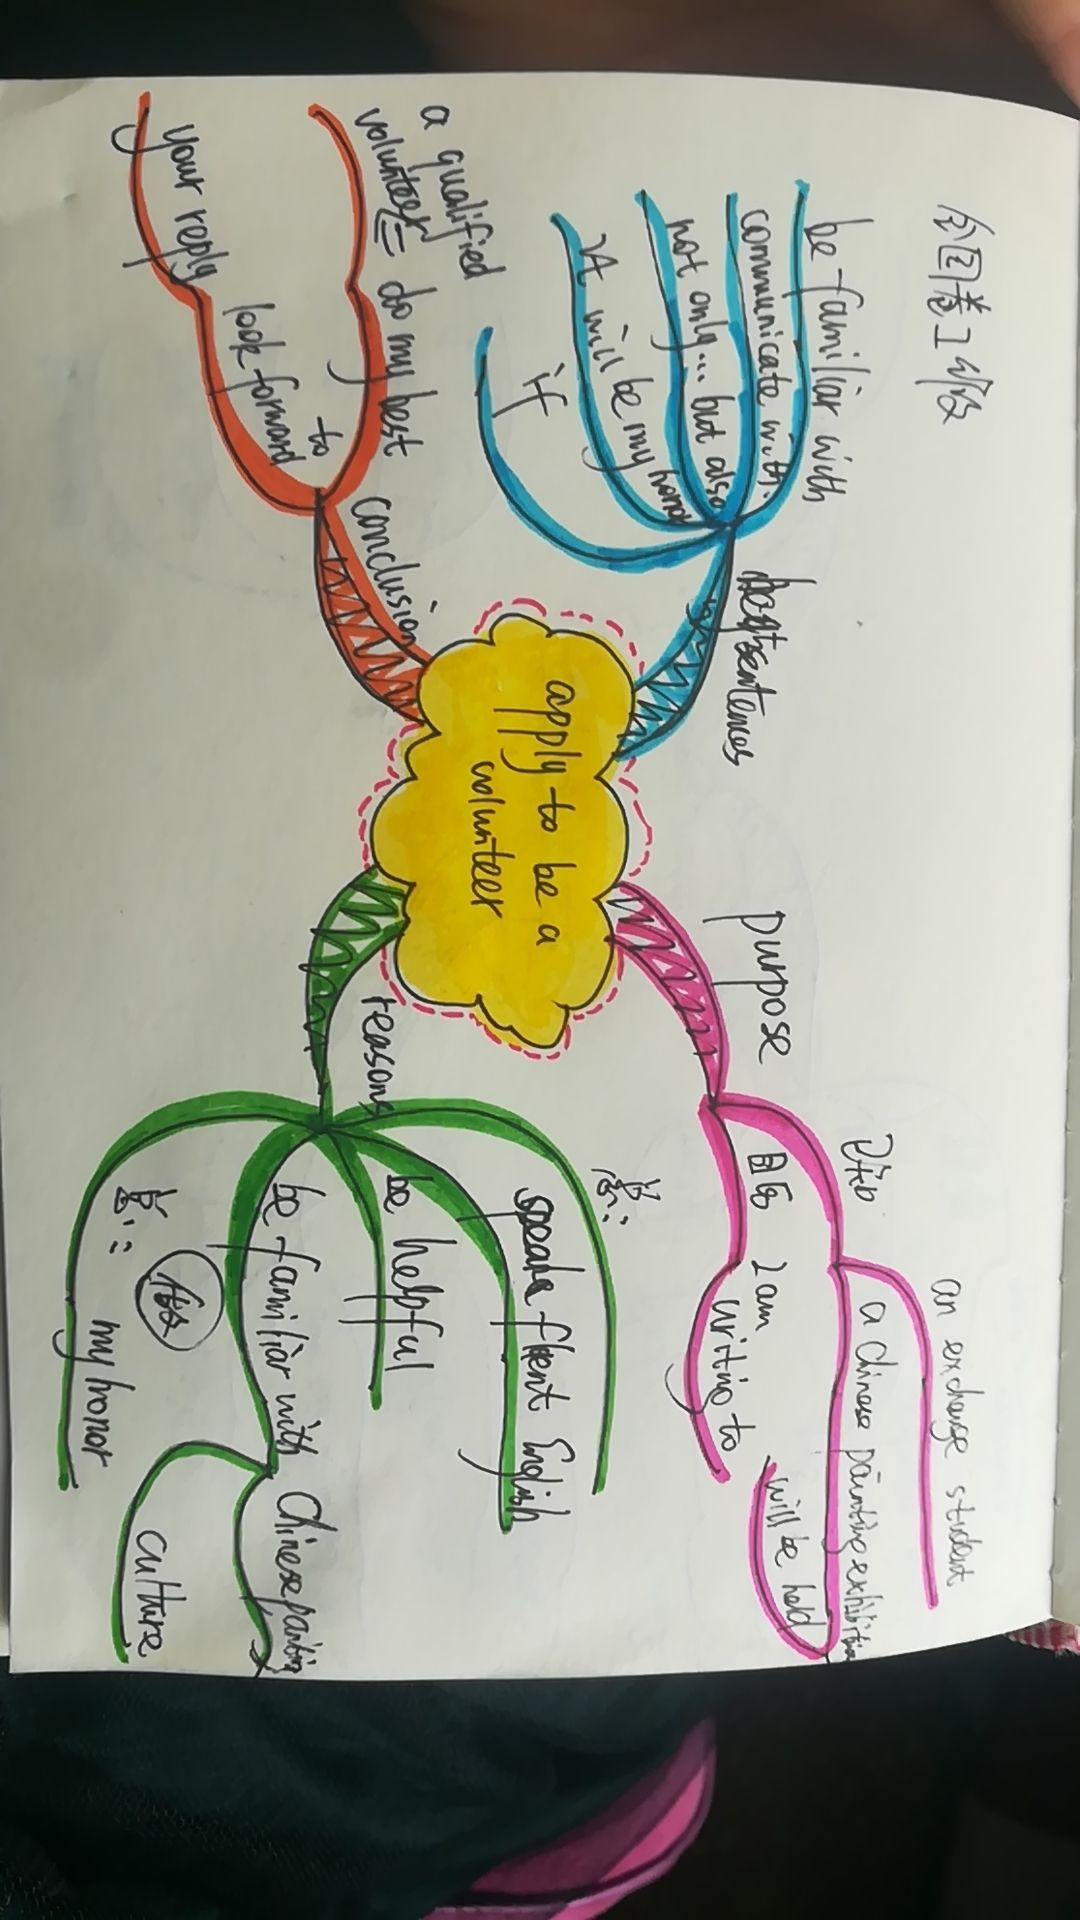 全国卷I 85
apply to be a
volunteer
purpose
an exchange student
a Chinese painting exhibition
will be held
目的
I am
writing to
reasons
首:
speak fluent English
be helpful
be familiar with Chinese painting
culture
首::
my honor
best sentences
be familiar with
communicate with.
not only... but also
It will be my honor
if
conclusion
a qualified
volunteer = do my best
look forward
to
your reply